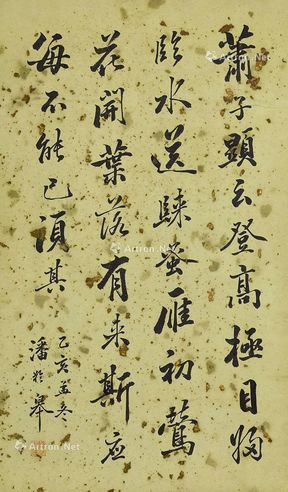 蕭子顯云登高極目
臨水送歸蚤雁初鶯
花開葉落有来斯应
每不能已須其
乙亥孟冬
潘龄皋
Artron.Net